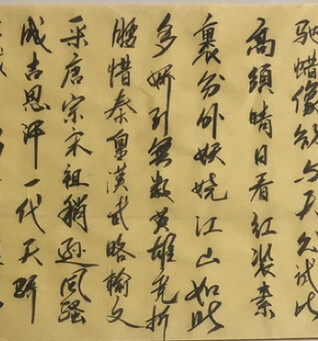 驰蜡像欲与天公试比
高須晴日看红装素
裹分外妖娆江山如此
多娇引無数英雄竞折
腰惜秦皇漢武略输文
采唐宗宋祖稍逊风骚
成吉思汗一代天骄